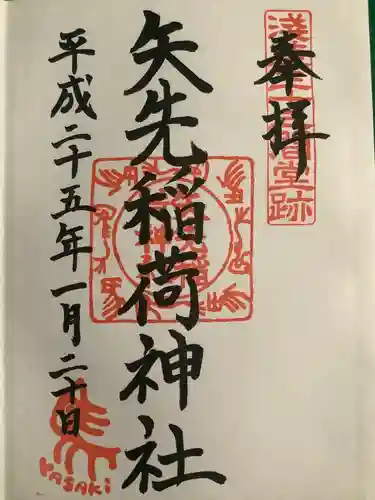 奉拝
浅草三十三間堂跡
矢先稲荷神社
平成二十五年一月二十日
YASAKi